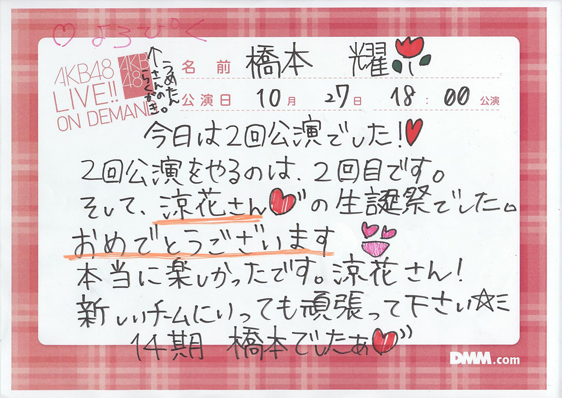 ♡よろぴく
AKB48
LIVE!!
ON DEMAND
AKB
48
名前 橋本 耀
公演日 10月 27日 18:00 公演
今日は2回公演でした!♥
2回公演をやるのは、2回目です。
そして、涼花さん♥の生誕祭でした。
おめでとうございます
本当に楽しかったです。涼花さん!
新しいチームにいっても頑張って下さい☆ミ
14期 橋本でしたぁ♥
DMM.com